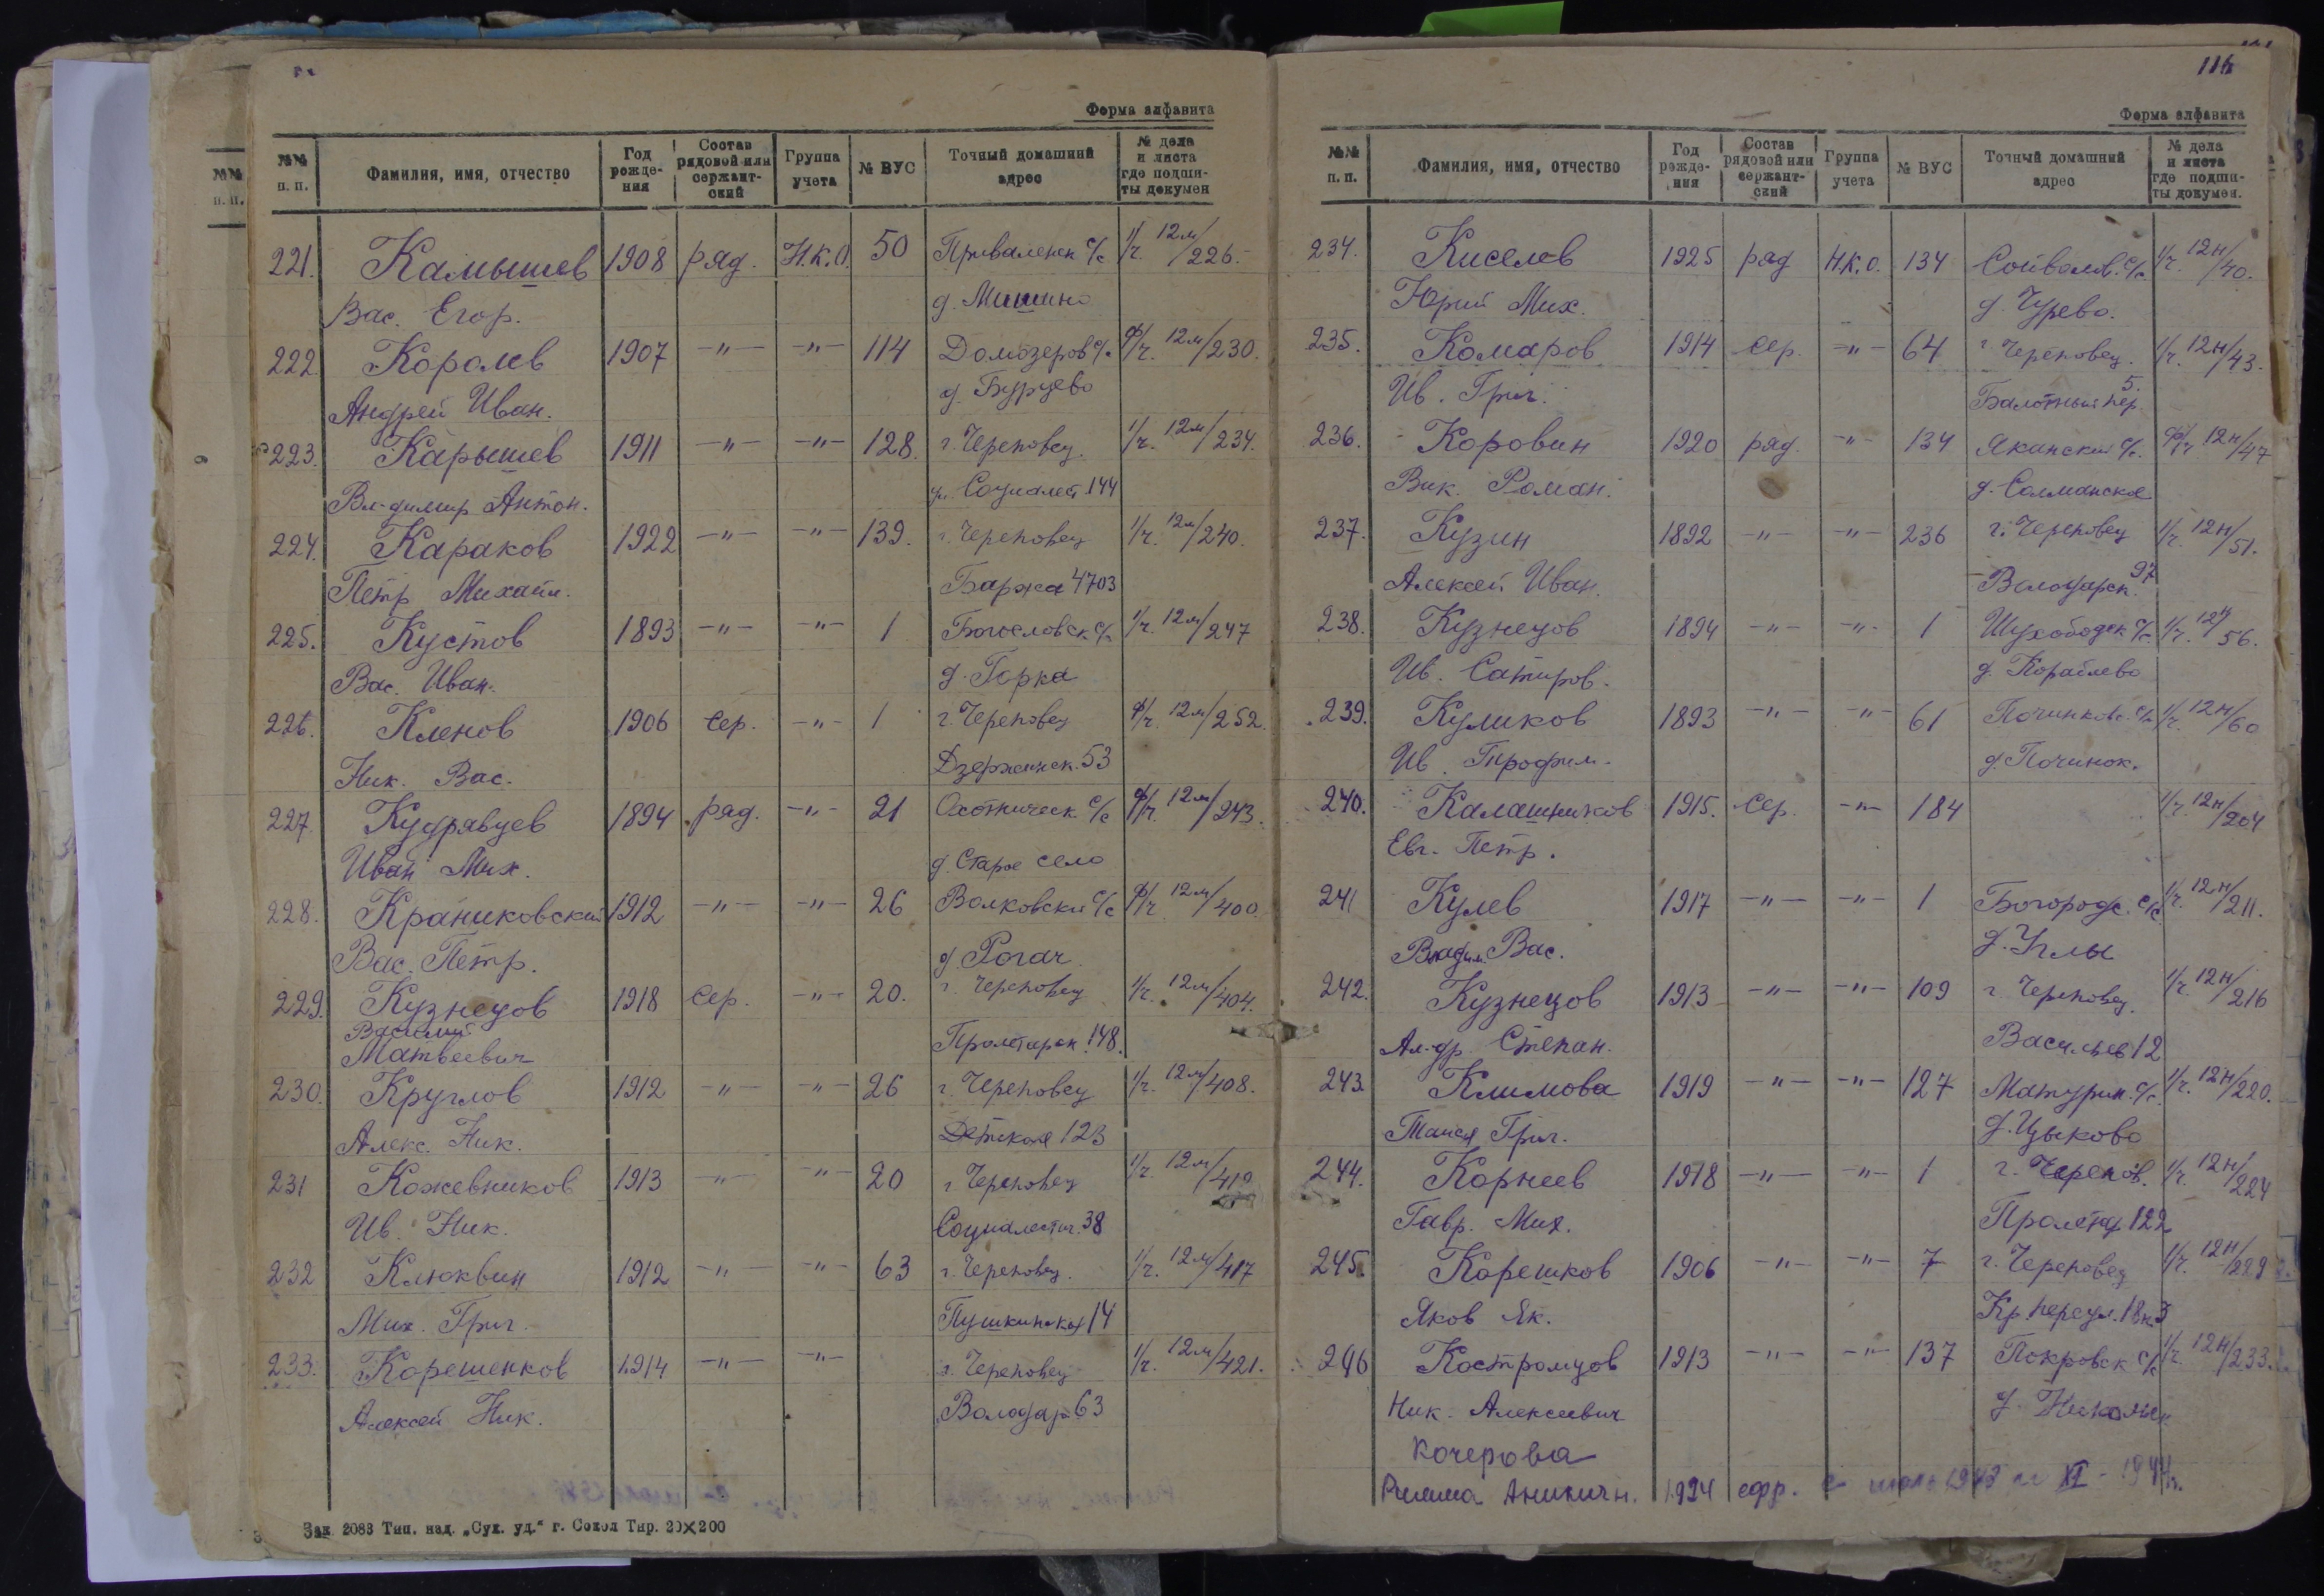 Форма алфавита
№№ п. п. Фамилия, имя, отчество Год рождения Состав рядовой или сержантский Группа учета № ВУС Точный домашний адрес № дела и листа где подшиты докумен
221. Камышев 1908 ряд. Н.К.О. 50 Приваленск с/с 1/г. 12м/226.
Вас. Егор. д. Мишино
222. Королев 1907 -"- -"- 114 Домозеров с/с ф/г. 12м/230.
Андрей Иван. д. Бурцево
223. Карышев 1911 -"- -"- 128. г. Череповец. 1/г. 12м/234.
Вл-димир Антон. ул. Социалист 144
224. Караков 1922 -"- -"- 139. г. Череповец 1/г. 12м/240.
Петр Михайл. Баржа 4703
225. Кустов 1893 -"- -"- 1 Богословск с/с 1/г. 12м/247
Вас. Иван. д. Горка
226. Кленов 1906 сер. -"- 1 г. Череповец ф/г. 12м/252.
Ник. Вас. Дзержинск. 53
227. Кудрявцев 1894 ряд. -"- 21 Охотническ. с/с ф/г. 12м/243.
Иван Мих. д. Старое село
228. Краниковский 1912 -"- -"- 26 Волковски с/с ф/г 12м/400.
Вас. Петр. д. Рогач
229. Кузнецов 1918 сер. -"- 20. г. Череповец 1/г. 12м/404.
Василий
Матвеевич Пролетарск. 148.
230. Круглов 1912 -"- -"- 26 г. Череповец 1/г. 12м/408.
Алекс. Ник. Детская 123
231 Кожевников 1913 -"- -"- 20 г. Череповец 1/г. 12м/412
Ив. Ник. Социалистич. 38
232 Клюквин 1912 -"- -"- 63 г. Череповец. 1/г. 12м/417
Мих. Григ. Пушкинская 14
233. Корешенков 1914 -"- -"- г. Череповец 1/г. 12м/421.
Алексей Ник. Володар 63
Зак. 2083 Тип. изд. „Сух. уд." г. Сокол Тир. 20×200
116
Форма алфавита
№№ п. п. Фамилия, имя, отчество Год рождения Состав рядовой или сержантский Группа учета № ВУС Точный домашний адрес № дела и листа где подшиты докумен.
234. Киселев 1925 ряд Н.К.О. 134 Сойволов. с/с 1/г. 12н/40.
Юрий Мих. д. Чурево.
235. Комаров 1914 сер. -"- 64 г. Череповец. 1/г. 12н/43.
Ив. Григ. Балотный пер. 5.
236. Коровин 1920 ряд. -"- 134 Яканский с/с. ф/г 12н/47
Вик. Роман. д. Солманское
237. Кузин 1892 -"- -"- 236 г. Череповец 1/г. 12н/51.
Алексей Иван. Володарск. 97
238. Кузнецов 1894 -"- -"- 1 Шухободск с/с 1/г. 12н/56.
Ив. Сатиров. д. Тораилево
239. Куликов 1893 -"- -"- 61 Починковс. с/с 1/г. 12н/60
Ив. Трофим. д. Починок.
240. Калашников 1915. сер. -"- 184 1/г. 12н/204
Евг. Петр.
241 Кулев 1917 -"- -"- 1 Богородс. с/с 1/г. 12н/211.
Владим. Вас. д. Углы
242. Кузнецов 1913 -"- -"- 109 г. Череповец. 1/г. 12н/216
Ал-др Степан. Васильев 12
243 Климова 1919 -"- -"- 127 Матурин. с/с. 1/г. 12н/220.
Таися Григ. д. Цыково
244. Корнеев 1918 -"- -"- 1 г. Черепов. 1/г. 12н/224
Гавр. Мих. Пролетар 122
245. Корешков 1906 -"- -"- 7 г. Череповец 1/г. 12н/229
Яков Як. Кр. переул. 18 к 3
246 Костромцов 1913 -"- -"- 137 Покровск с/с 1/г. 12н/233.
Ник. Алексеевич
Кочерова
Римма Аникичн. 1924 ефр. с июль 1943 по XI - 1944г.